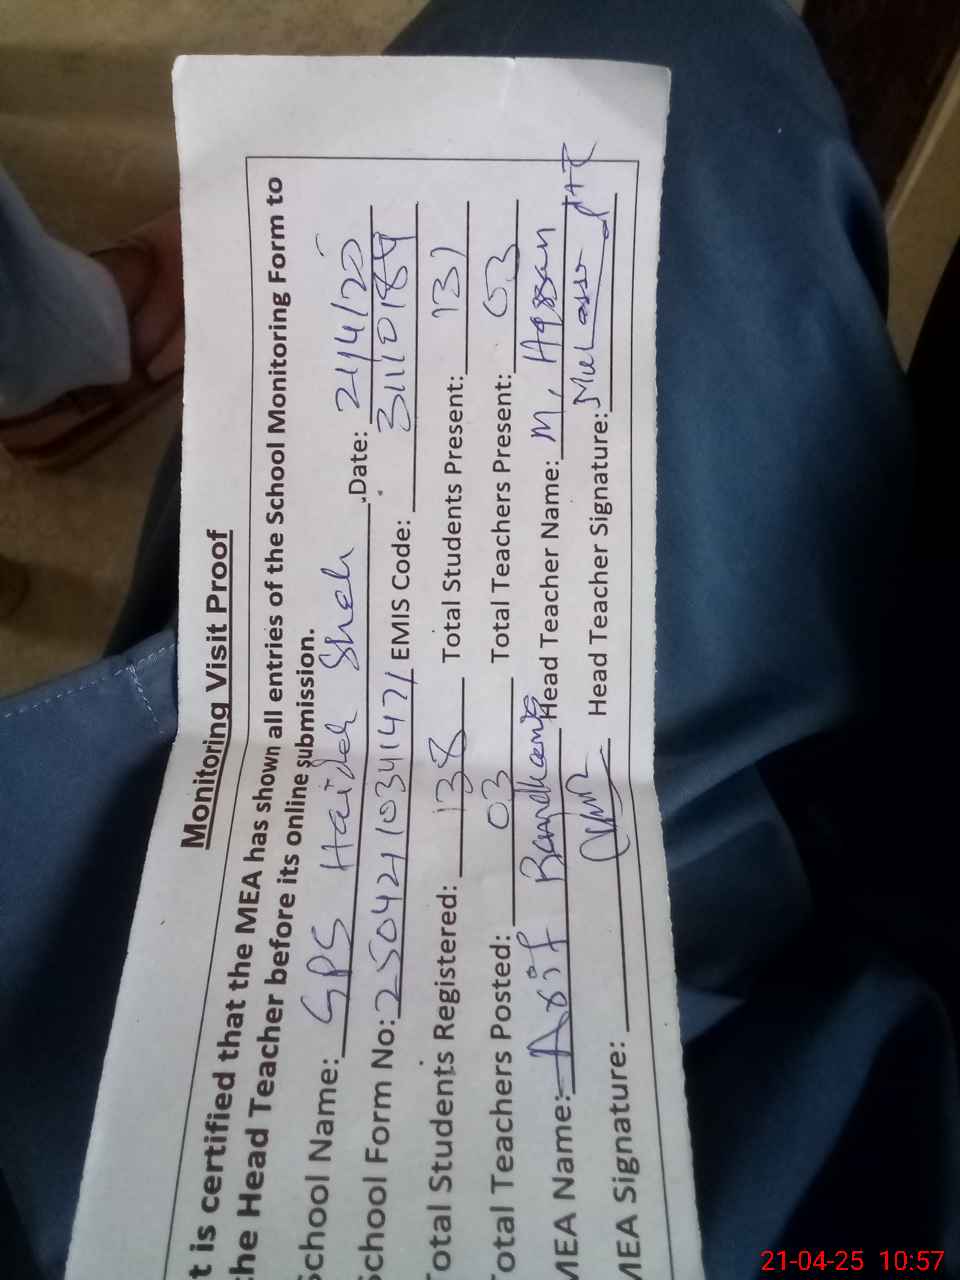 Monitoring Visit Proof
t is certified that the MEA has shown all entries of the School Monitoring Form to
the Head Teacher before its online submission.
School Name: GPS Haider Shah Date: 21/4/25
School Form No: 25042110341421 EMIS Code: 31110184
Total Students Registered: 138 Total Students Present: 131
Total Teachers Posted: 03 Total Teachers Present: 03
MEA Name: Asif Head Teacher Name: M. Hassan
MEA Signature: Head Teacher Signature:
21-04-25 10:57